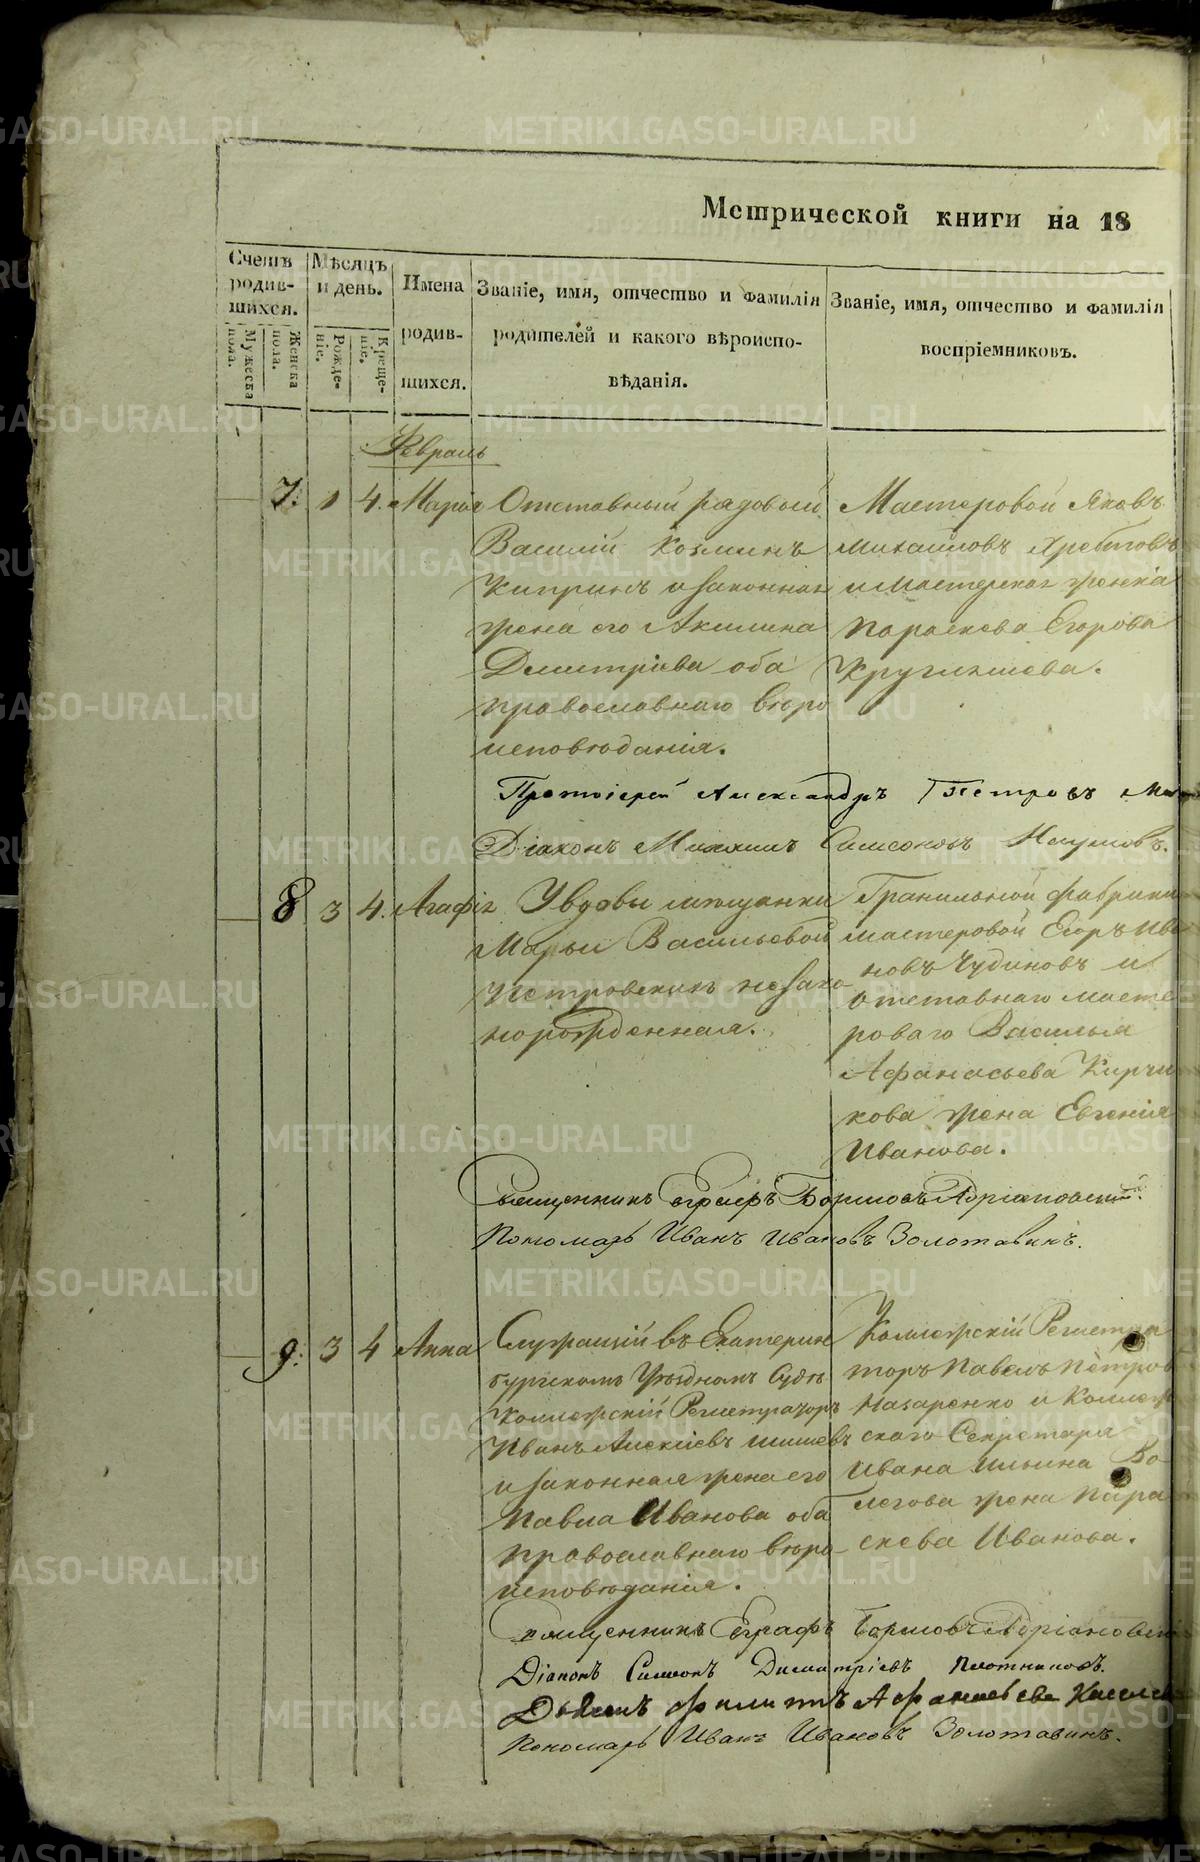 Метрической книги на 18
Счетъ родив-шихся.
Мужеска пола.
Женска пола.
Мѣсяцъ и день.
Рожде-ніе.
Креще-ніе.
Имена родив-шихся.
Званіе, имя, отчество и фамилія
родителей и какого вѣроиспо-
вѣданія.
Званіе, имя, отчество и фамилія
воспріемниковъ.
Февраль
7. 1 4. Марія
Отставный рядовый
Василій Козминъ
Кипринъ и законная
жена его Акилина
Димитріева оба
православнаго вѣро
исповѣданія.
Мастеровой Яковъ
Михайловъ Хребтовъ
и мастерская женка
Параскева Егорова
Круглышева.
Протоіерей Александръ Петровъ
Діаконъ Михаилъ Симеоновъ Наумовъ.
8 3 4. Агафія
У вдовы мѣщанки
Марьи Васильевой
Петровскихъ незако
норожденная.
Гранильной фабрики
мастеровой Егоръ Ива
новъ Чудиновъ и
отставнаго масте
роваго Василья
Афанасьева Кирчи
кова жена Евгенія
Иванова.
Священникъ Евграфъ Борисовъ Адріановскій.
Пономарь Иванъ Ивановъ Золотавинъ.
9. 3 4 Анна
Служащій въ Екатерин
бургскомъ Уѣздномъ Судѣ
Коллежскій Регистраторъ
Иванъ Алексіевъ Шишевъ
и законная жена его
Павла Иванова оба
православнаго вѣро
исповѣданія.
Коллежскій Регистра
торъ Павелъ Петровъ
Назаренко и Коллеж
скаго Секретаря
Ивана Ильина Во
легова жена Пара
скева Иванова.
Священникъ Евграфъ Борисовъ Адріановскій
Діаконъ Симеонъ Димитріевъ Плотниковъ.
Дьячекъ Филиппъ Афанасьевъ
Пономарь Иванъ Ивановъ Золотавинъ.
METRIKI.GASO-URAL.RU